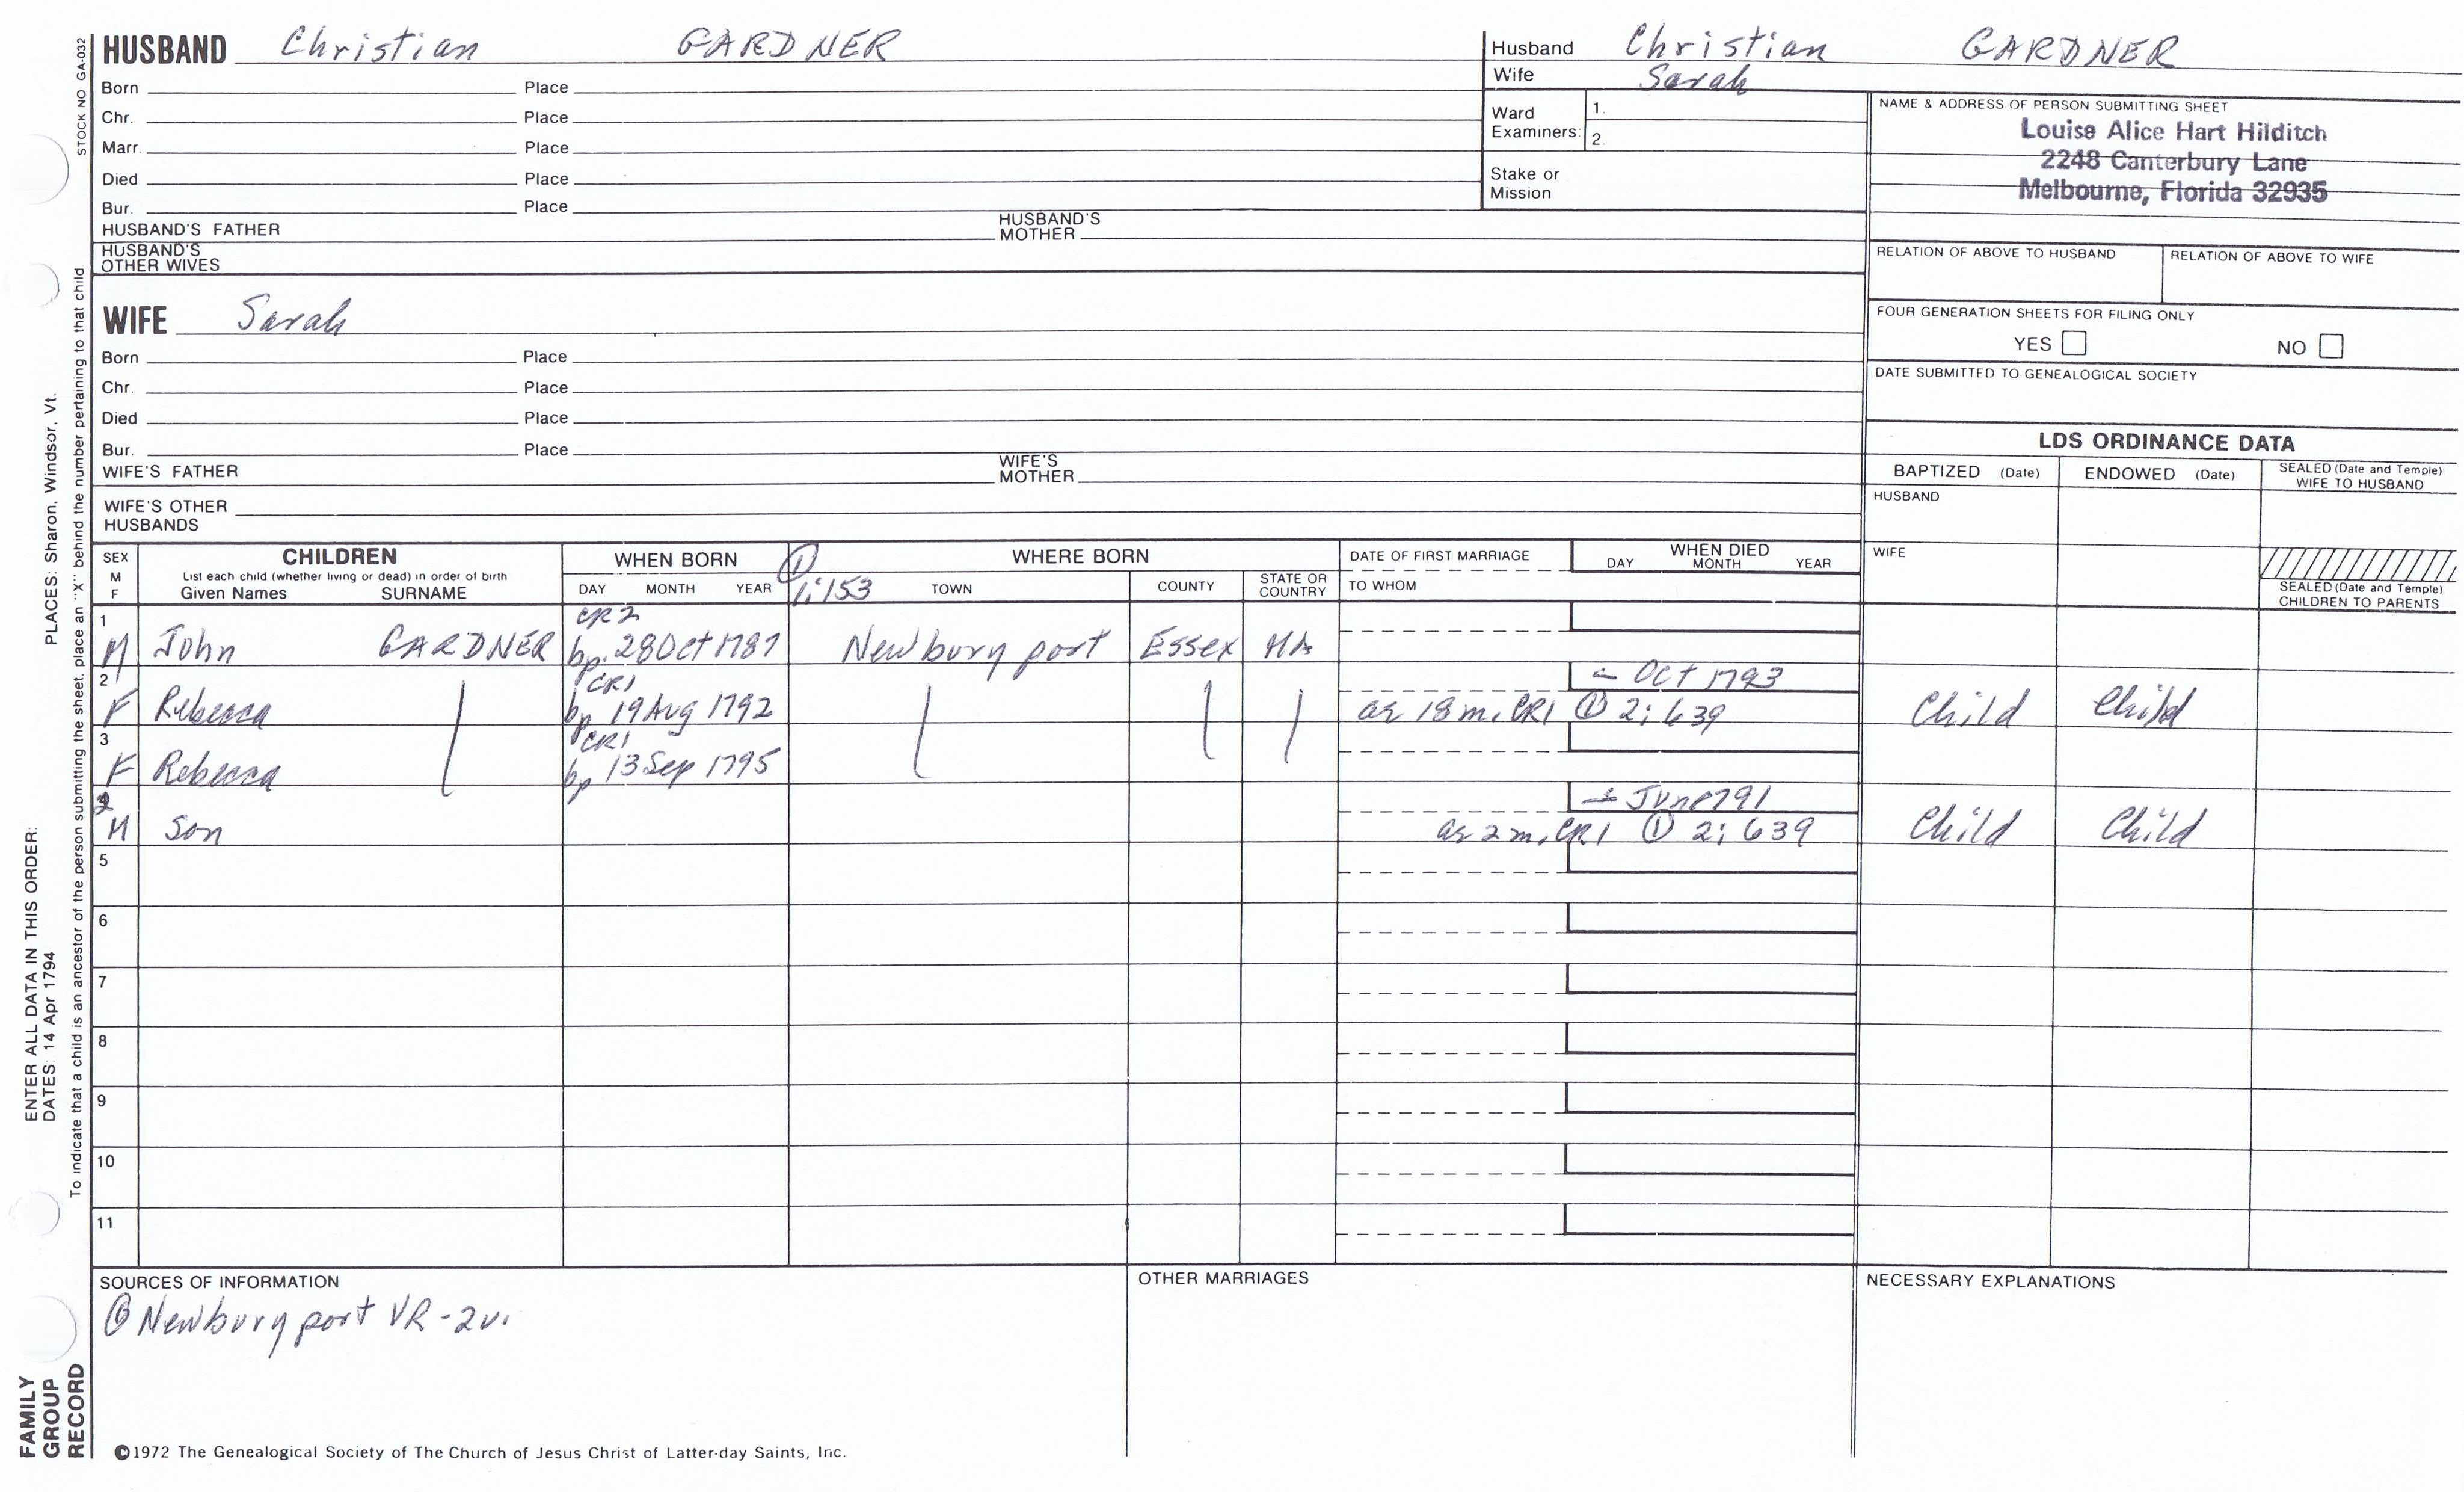 STOCK NO GA-032
HUSBAND Christian GARDNER
Born Place
Chr. Place
Marr. Place
Died Place
Bur. Place
HUSBAND'S FATHER HUSBAND'S MOTHER
HUSBAND'S OTHER WIVES
WIFE Sarah
Born Place
Chr. Place
Died Place
Bur. Place
WIFE'S FATHER WIFE'S MOTHER
WIFE'S OTHER HUSBANDS
Husband Christian GARDNER
Wife Sarah
Ward Examiners: 1.
2.
Stake or Mission
NAME & ADDRESS OF PERSON SUBMITTING SHEET
Louise Alice Hart Hilditch
2248 Canterbury Lane
Melbourne, Florida 32935
RELATION OF ABOVE TO HUSBAND RELATION OF ABOVE TO WIFE
FOUR GENERATION SHEETS FOR FILING ONLY
YES NO
DATE SUBMITTED TO GENEALOGICAL SOCIETY
LDS ORDINANCE DATA
BAPTIZED (Date) ENDOWED (Date) SEALED (Date and Temple) WIFE TO HUSBAND
HUSBAND
WIFE
SEALED (Date and Temple) CHILDREN TO PARENTS
SEX M F
CHILDREN
List each child (whether living or dead) in order of birth
Given Names SURNAME
WHEN BORN
DAY MONTH YEAR
① 1:153
WHERE BORN
TOWN COUNTY STATE OR COUNTRY
DATE OF FIRST MARRIAGE
TO WHOM
WHEN DIED
DAY MONTH YEAR
1 CR2
M John GARDNER bp. 28 Oct 1787 Newburyport Essex MA
2 CR1 - Oct 1793
F Rebecca bp 19 Aug 1792 ae 18 m. CR1 ① 2:639 Child Child
3 CR1
F Rebecca bp 13 Sep 1795
- June 1791
M Son ae 2 m. CR1 ① 2:639 Child Child
5
6
7
8
9
10
11
SOURCES OF INFORMATION
① Newburyport VR - 2v.
OTHER MARRIAGES
NECESSARY EXPLANATIONS
©1972 The Genealogical Society of The Church of Jesus Christ of Latter-day Saints, Inc.
FAMILY GROUP RECORD
ENTER ALL DATA IN THIS ORDER:
DATES: 14 Apr 1794 PLACES: Sharon, Windsor, Vt.
To indicate that a child is an ancestor of the person submitting the sheet, place an "X" behind the number pertaining to that child